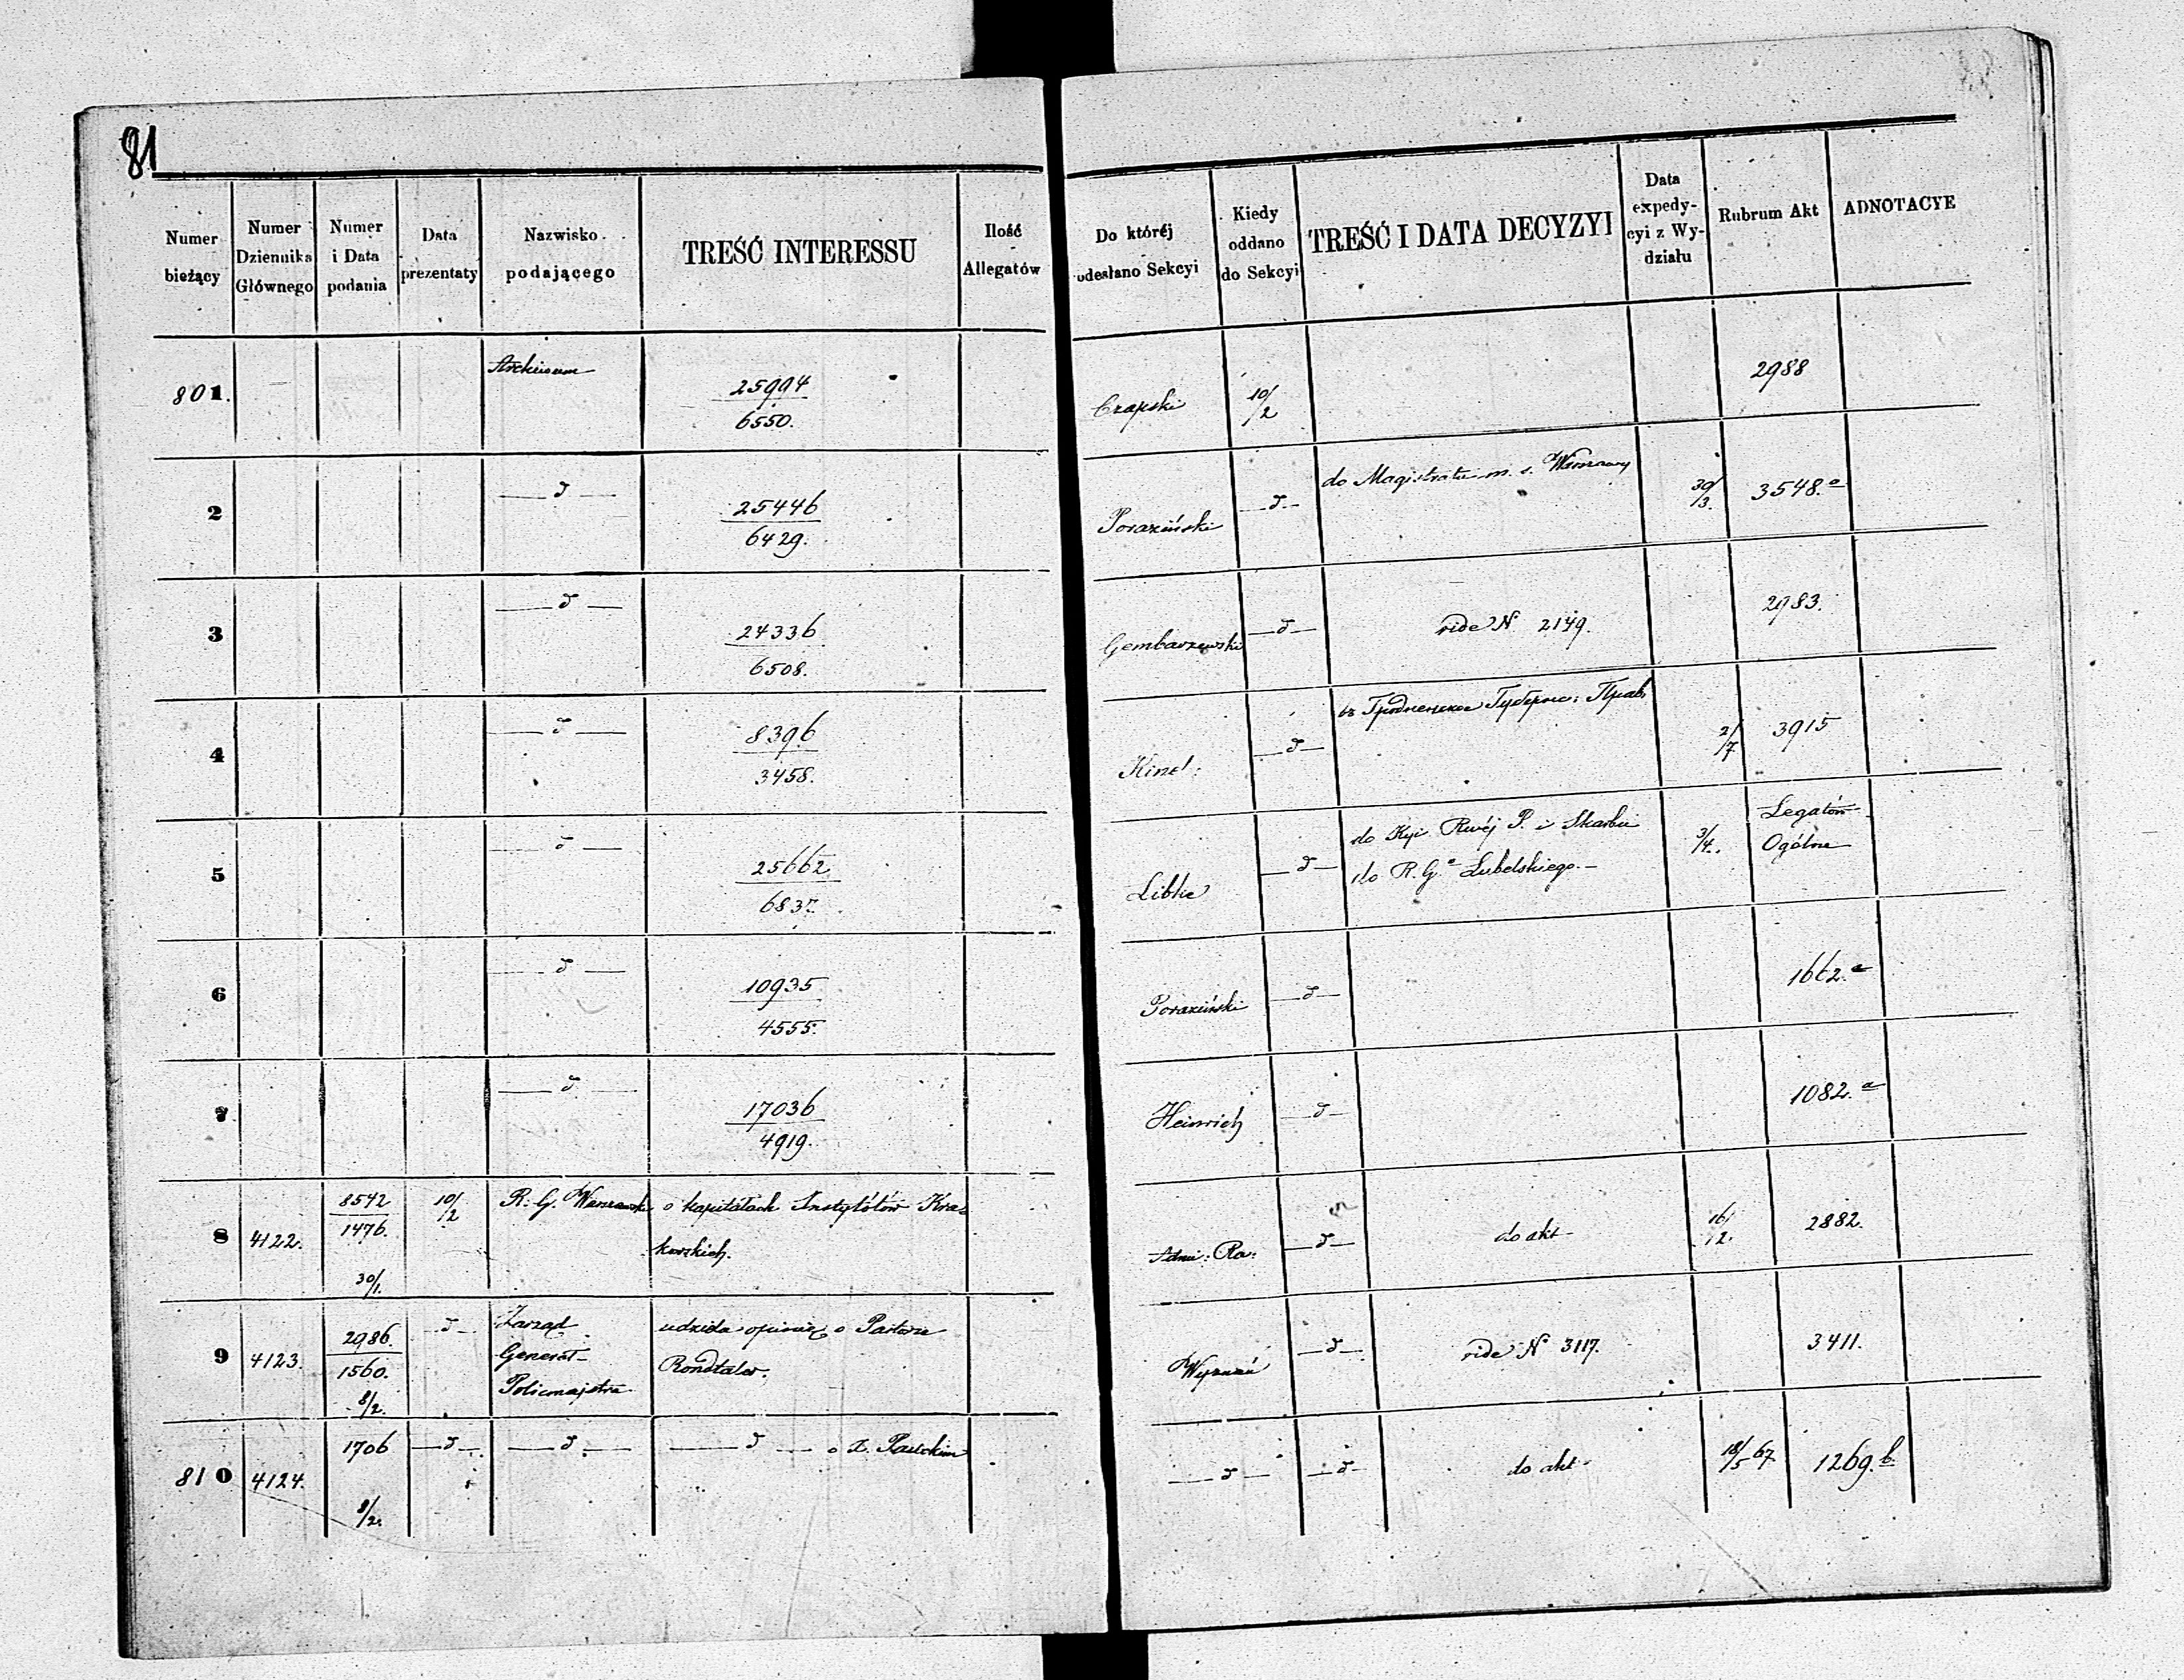 81
Numer bieżący
Numer Dziennika Głównego
Numer i Data podania
Data prezentaty
Nazwisko podającego
TREŚĆ INTERESSU
Ilość Allegatów
Do której odesłano Sekcyi
Kiedy oddano do Sekcyi
TREŚĆ I DATA DECYZYI
Data expedycyi z Wydziału
Rubrum Akt
ADNOTACYE
801. Archiwum 25994/6550. Czapski 10/2 2988
2 —d— 25446/6429. Poraziński —d— do Magistratu m. s. Warszawy 30/3. 3548.a
3 —d— 24336/6508. Gembarzewski —d— vide N 2149. 2983.
4 —d— 8396/3458. Kinel: —d— въ Гродненское Губернс: Прав. 2/7 3915
5 —d— 25662/6837. Libke —d— do Kyi Rwéj P. i Skarbu 3/4. Legatów
do R. G. Lubelskiego.— Ogólne
6 —d— 10935/4555. Poraziński —d— 1662.a
7 —d— 17036/4919. Heinrich —d— 1082.a
8 4122. 8542/1476. 30/1. 10/2 R. G. Warszawski o kapitałach Instytótów Kra-
—d— do akt— 16/12. 2882.
9 4123. 2986./1560. 8/2. —d— Zarząd
Generał-
Policmajstra
udziela opinię o Pastorze
Rondtaler.
Wyznań —d— vide N 3117. 3411.
810 4124. 1706 8/2. —d— —d— —d— o X.
—d— —d— do akt— 18/5 67 1269.b